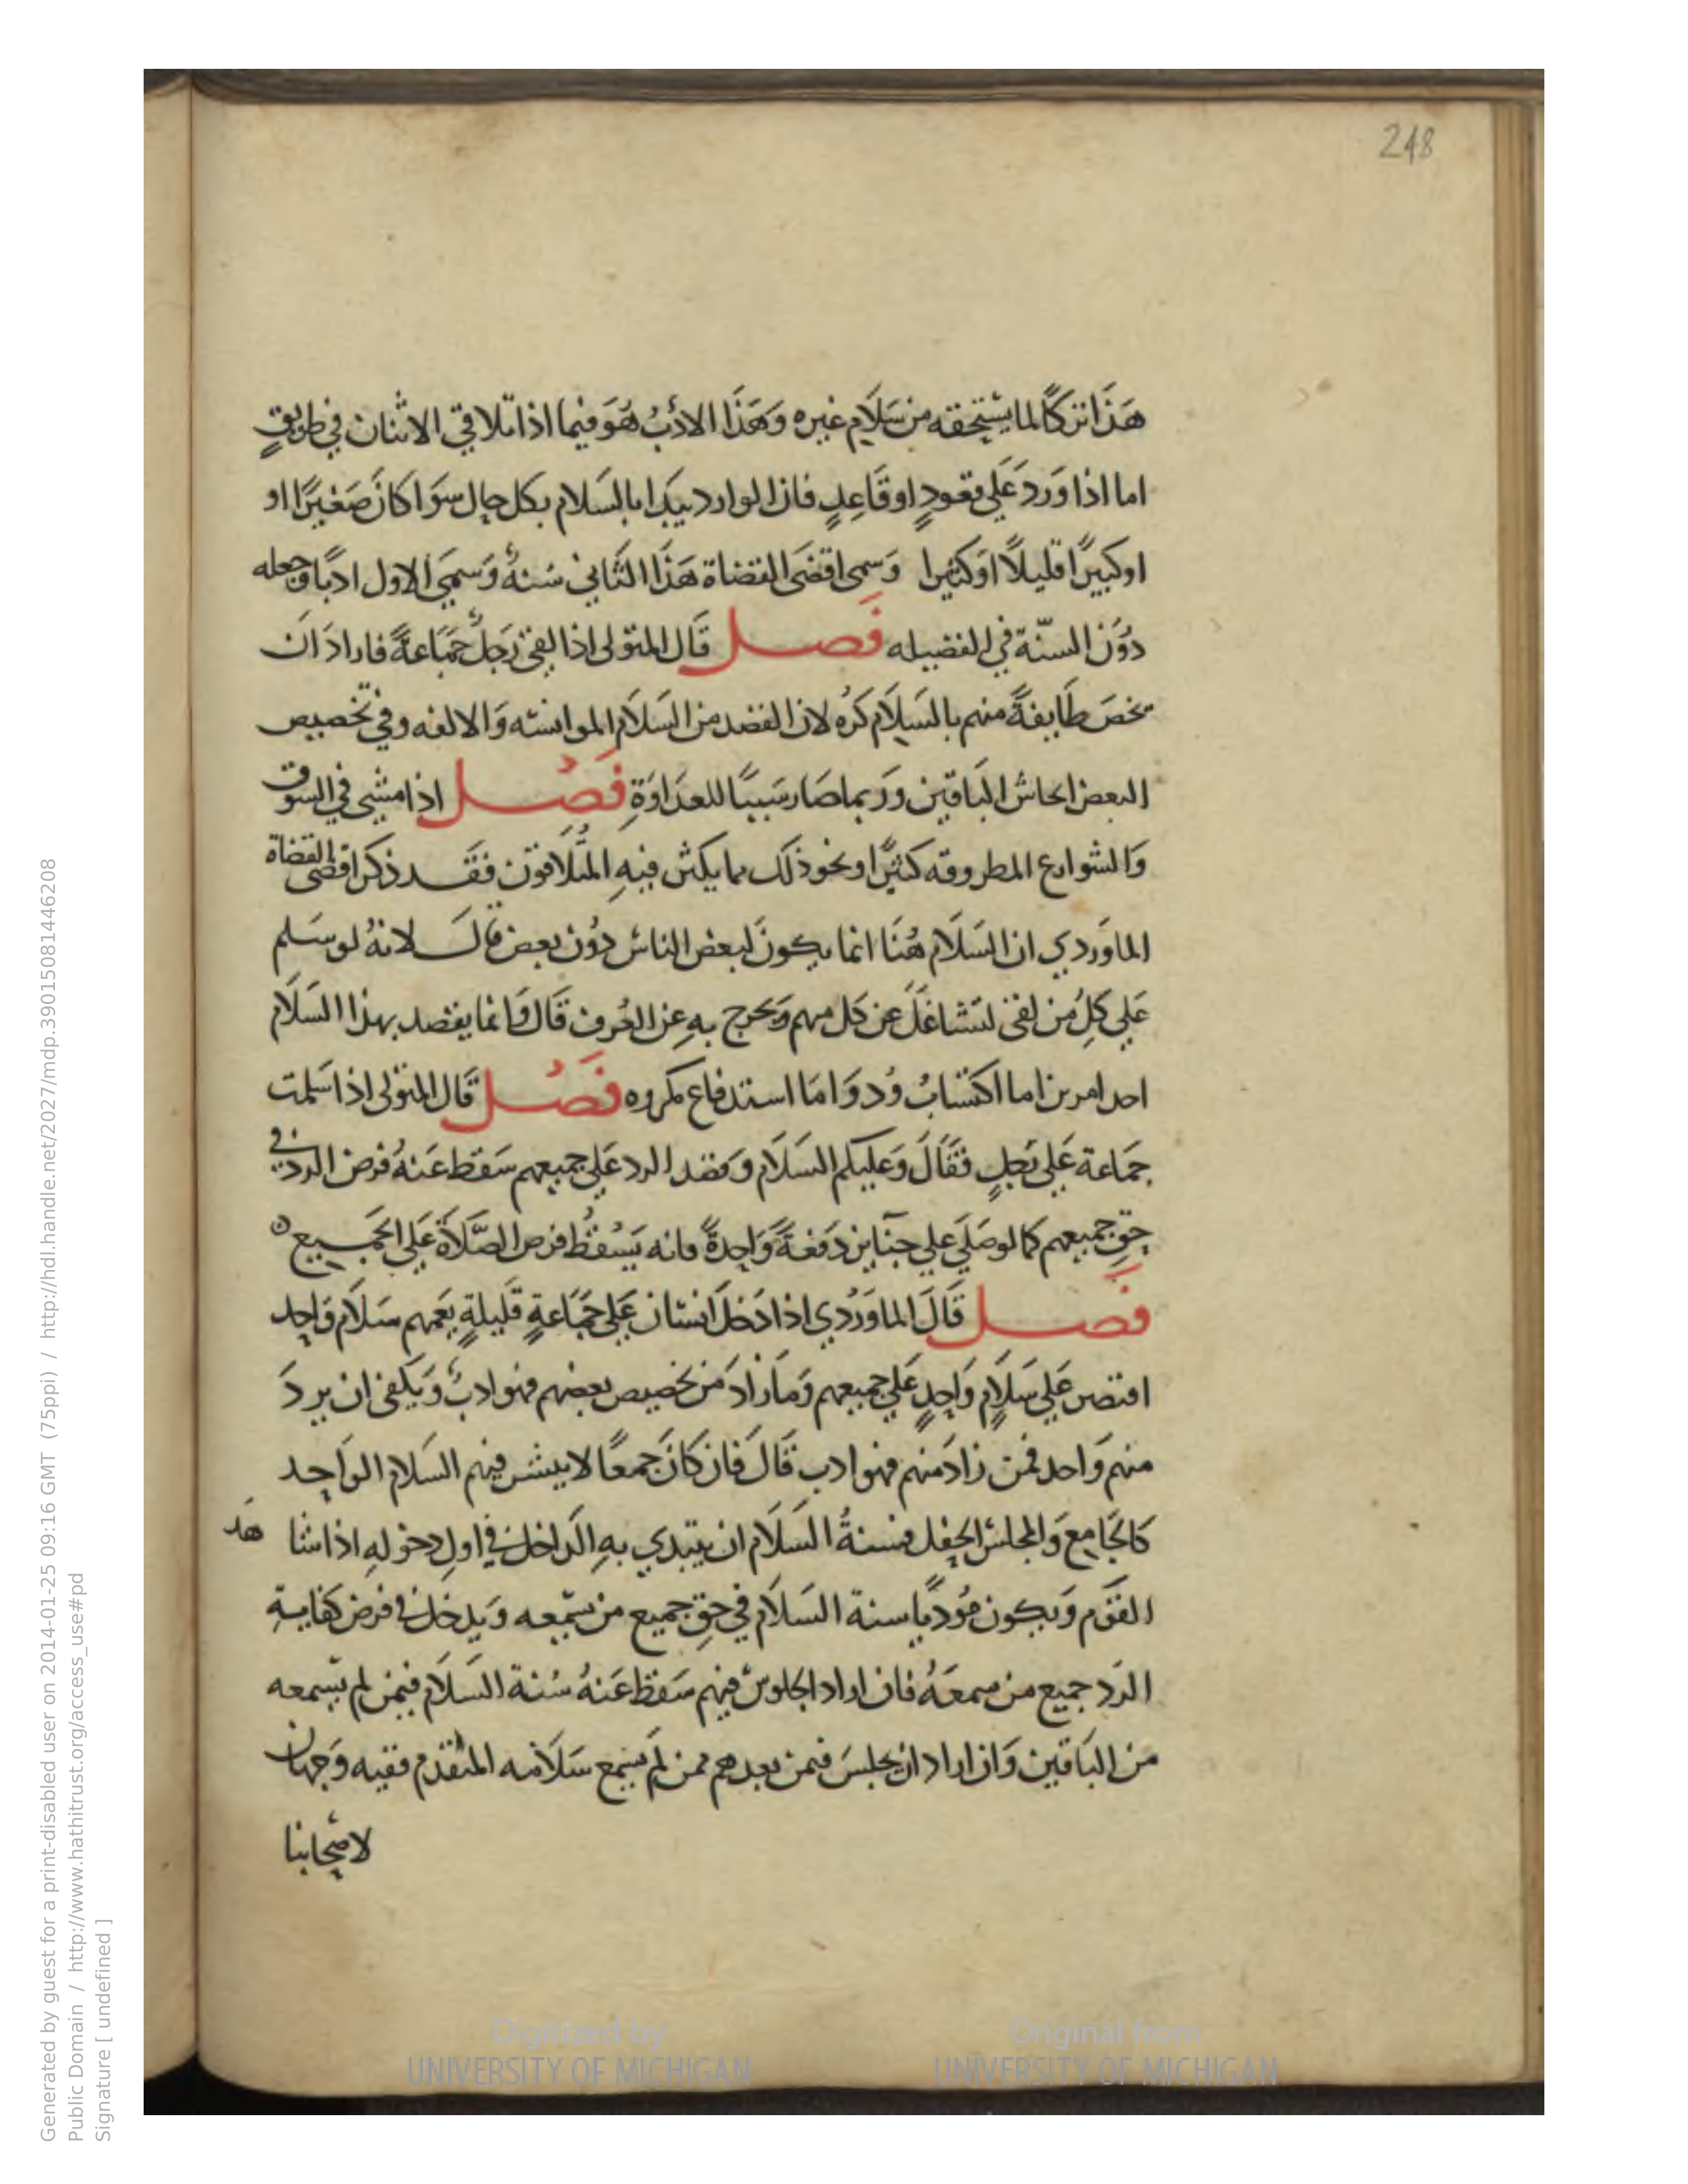 248
هَذَا تركًا لما يستحقه من سَلَام غيره وَهَذَا الادَبُ هُوَ فيما اذا تلاقي الاثنان في طريقٍ
اما اذا وَرَدَ عَلي قعودٍ او قَاعِدٍ فان الوارد يبدَا بالسَلام بكل حال سوَا كانَ صَغيرًا او
او كبيرًا قليلًا اوَ كثيرا وَسمى اقضَى القضاة هَذَا الثَاني سُنةً وَسمَي الاول ادبًا وجعله
دوُن السنّة في الفضيله فَصل قَال المتولى اذا لقى رَجلٌ جَمَاعةً فارادَ انَ
يخصَ طَايفةً منهم بالسَلَام كرُه لان القصد من السَلَام الموانسَه وَالالفه وفي تخصيص
البعض ايحاش البَاقين وَربما صَار سَببًا للعدَاوَةِ فَصْل اذا مشى في السوق
وَالشوارع المطروقه كثيرًا ونحو ذلك مما يكثر فيهِ المتُلَاقون فقَد ذكر اقضى القضاة
الماوَردي ان السَلَام هُنَا انما يكونَ لبعض الناس دوُن بعض قال لانهُ لو سَلم
عَلي كلِ مُن لقى لتشاغَلَ عن كل مهم وَيخرج بهِ عن العُرف قَال وَانما يقصد بهذا السَلَام
احد امرين اما اكتسَابُ وُد وَامَا استدفاع مكروه فَصْل قَال المتولى اذا سَلمت
جمَاعة عَلي رَجلٍ فقَالَ وَعَليكم السَلَام وَقصد الرد عَلي جميعهم سَقط عَنهُ فرض الرد في
حقِ جميعهم كما لو صَلَي علي جنَايز دَفعَةً وَاحِدةً فانه يَسْقُط فرض الصَّلَاة عَلي الجَميع
فَصل قَالَ الماوَرْدي اذا دَخلَ انسَان عَلي جَمَاعةٍ قَليلةٍ يَعمهم سَلَام وَاحد
اقتصر عَلي سَلَامٍ وَاحدٍ عَلي جميعهم وَمَا زادَ مَن تخصيص بعضهم فهو ادبٌ وَيكفى ان يردَ
منهم وَاحد فمن زادَ منهم فهو ادب قَالَ فان كانَ جَمعًا لا ينتشر فيهم السَلام الوَاحد
كالجَامع وَالمجلس الحفل فسنةُ السَلَام ان يبتدي بهِ الدَاخل في اولِ دخولهِ اذا شا هد
القوَم وَيكون مُوديًا سنة السَلَام في حقِ جميع من سمعه وَيدخل في فرض كفايةِ
الرَد جميع من سمعَهُ فان اراد الجلوس فيهم سَقط عَنهُ سُنة السَلَام فيمن لم يسمعه
من البَاقين وَان اراد ان يجلسَ فيمن بعدهم ممن لَم يسمع سَلَامه المتقدم ففيه وَجهان
لاصحابنا
Digitized by
UNIVERSITY OF MICHIGAN
Original from
UNIVERSITY OF MICHIGAN
Generated by guest for a print-disabled user on 2014-01-25 09:16 GMT (75ppi) / http://hdl.handle.net/2027/mdp.39015081446208
Public Domain / http://www.hathitrust.org/access_use#pd
Signature [ undefined ]